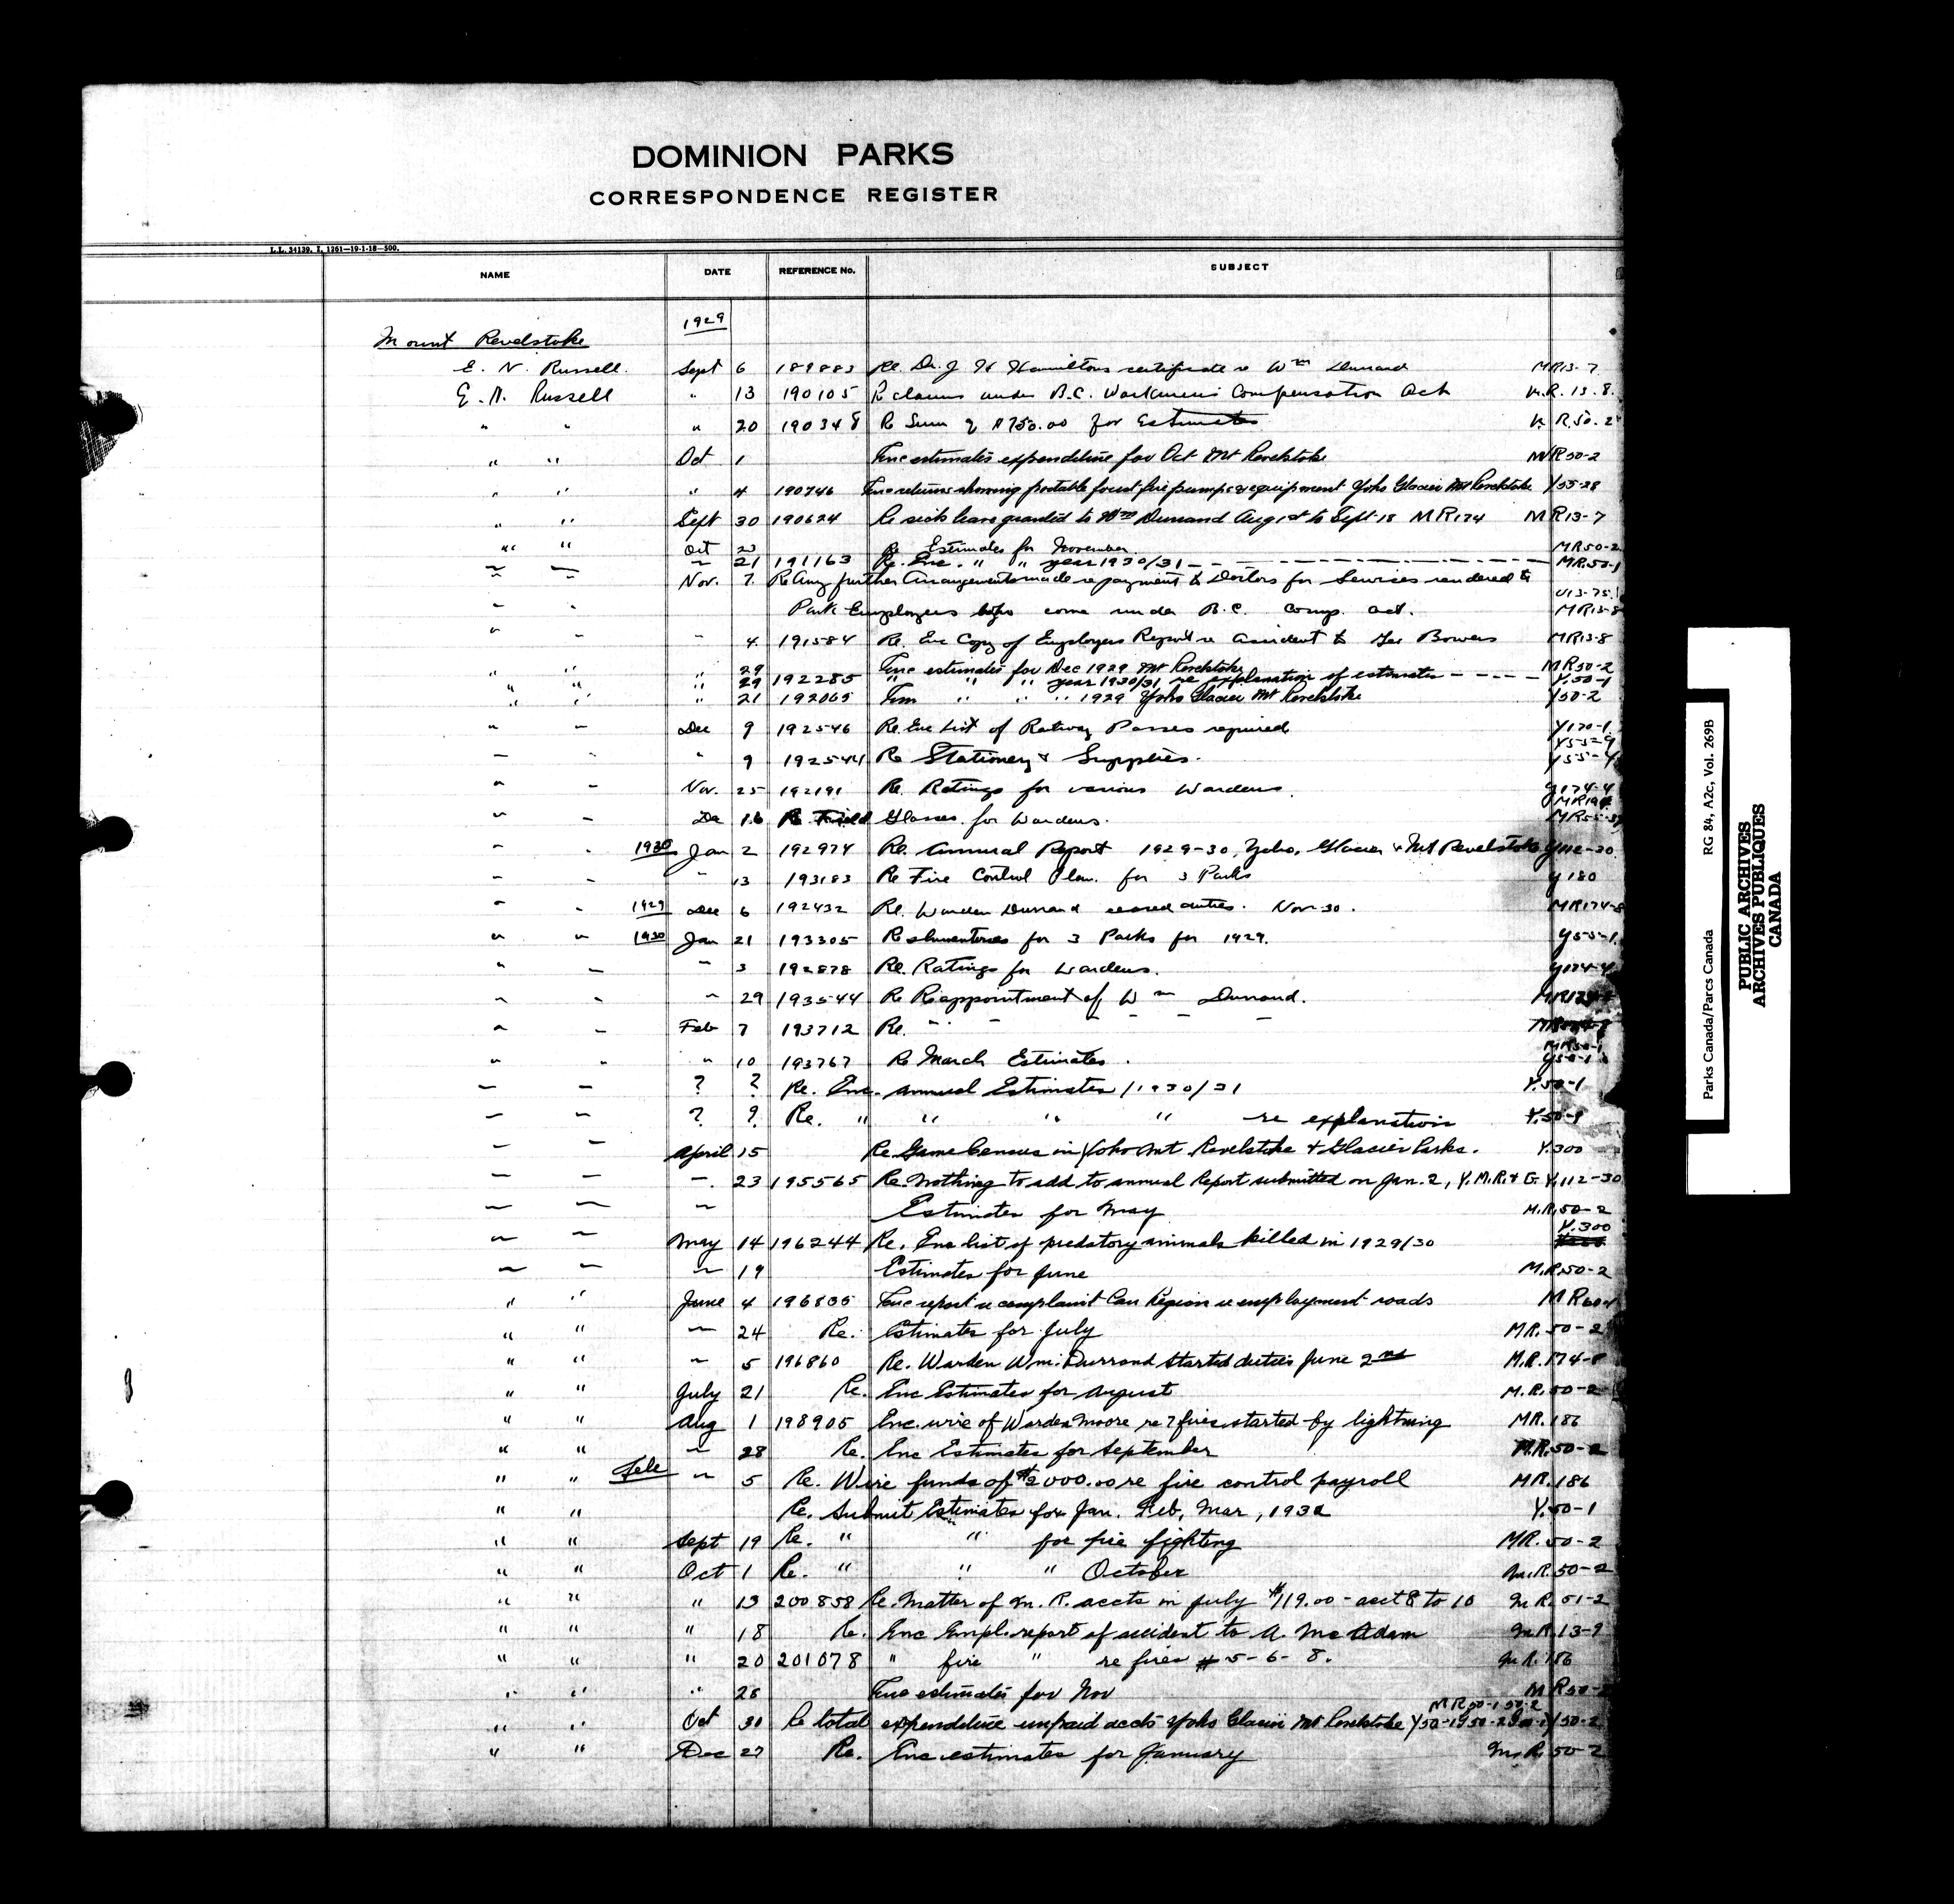 DOMINION PARKS
CORRESPONDENCE REGISTER
L.L. 34139. I. 1261—19-1-18—500.
NAME DATE REFERENCE No. SUBJECT
1929
Mount Revelstoke
E. N. Russell. Sept 6 189883 Re. Dr. J H Hamiltons certificate re Wm Durrand MR13-7
E. N. Russell " 13 190105 R claims under B.C. Workmens Compensation Act M.R. 13-8.
" " " 20 190348 Re Sum of $750.00 for Estimates M.R.50.2
" " Oct 1 Enc estimates expenditure for Oct Mt Revelstoke MR50-2
" " " 4 190746 Enc returns showing portable forest fire pumps & equipment Yoho Glacier Mt Revelstoke Y55-28
" " Sept 30 190624 Re sick leave granted to Wm Durrand Aug 1st to Sept 18 MR174 MR13-7
" " Oct 23 Re Estimates for November. MR50-2
~ ~ ~ 21 191163 Re. Enc. " " year 1930/31 MR.50-1
~ ~ Nov. 7. Re Any further Arrangements made re payment to Doctors for Services rendered to
~ " Park Employees who come under B.C. Comp. Act. U13-75. MR13-8
" ~ ~ 4. 191584 Re. Enc Copy of Employers Report re accident to Geo Bowers MR13-8
" " " 29 Enc estimates for Dec 1929 Mt Revelstoke MR50-2
" " " 29 192285 " " " year 1930/31 re explanation of estimates Y.50-1
" " " 21 192065 Enc " " " 1929 Yoho Glacier Mt Revelstoke Y50-2
" ~ Dec 9 192546 Re. Enc List of Railway Passes required Y170-1
Y55-9
~ " " 9 192544 Re Stationery & Supplies. Y55-4
" ~ Nov. 25 192191 Re. Ratings for various Wardens. Y174-4
" ~ De 16 Re Field Glasses for Wardens. MR55-
~ " 1930 Jan 2 192974 Re. Annual Report 1929-30, Yoho, Glacier & Mt Revelstoke Y112-30
~ ~ ~ 13 193183 Re Fire Control Plan. for 3 Parks Y180
~ " 1929 Dec 6 192432 Re. Warden Durrand ceased duties. Nov-30. MR174-8
" " 1930 Jan 21 193305 Re Inventories for 3 Parks for 1929. Y55-1.
" ~ ~ 3 192878 Re. Ratings for Wardens. Y174-4
~ ~ ~ 29 193544 Re Reappointment of Wm Durrand.
~ ~ Feb 7 193712 Re. " ~ ~ ~ ~
" " " 10 193767 Re March Estimates. MR50-1
Y50-1
~ ~ ? ? Re. Enc. annual Estimates 1930/31 Y.50-1
~ ~ ? ? Re. " " " " re explanation Y.50-1
~ ~ April 15 Re Game Census in Yoho Mt Revelstoke & Glacier Parks. Y.300
~ ~ ~. 23 195565 Re. Nothing to add to annual Report submitted on Jan. 2, Y. M.R. & G. Y.112-30
~ ~ ~ Estimates for May M.R.50-2
~ ~ May 14 196244 Re. Enc list of predatory animals killed in 1929/30 Y.300
~ ~ ~ 19 Estimates for June M.R.50-2
" " June 4 196835 Enc report re complaint Can Legion re employment roads MR60-
" " ~ 24 Re. Estimates for July MR. 50-2
" " ~ 5 196860 Re. Warden Wm. Durrand started duties June 2nd M.R. 174-8
" " July 21 Re. Enc Estimates for August M.R. 50-2
" " Aug 1 198905 Enc. wire of Warden Moore re 7 fires started by lightning MR.186
" " ~ 28 Re. Enc Estimates for September M.R.50-2
" " Tele ~ 5 Re. Wire funds of $2000.00 re fire control payroll MR.186
" " Re. Submit Estimates for Jan. Feb, Mar, 1932 Y.50-1
" " Sept 19 Re. " " for fire fighting MR.50-2
" " Oct 1 Re. " " " October M.R.50-2
" " " 13 200858 Re. Matter of M. R. accts in July $119.00 - acct 8 to 10 M.R. 51-2
" " " 18 Re. Enc Empl. report of accident to A. McAdam M.R.13-9
" " " 20 201078 " fire " re fires # 5-6-8. M.R.186
" " " 28 Enc estimates for Nov MR50-2
MR50-1 50-2
" " Oct 30 Re total expenditure unpaid accts Yoho Glacier Mt Revelstoke Y50-1 Y50-2
" " Dec 27 Re. Enc estimates for January M.R. 50-2
Parks Canada/Parcs Canada RG 84, A2c, Vol. 269B
PUBLIC ARCHIVES
ARCHIVES PUBLIQUES
CANADA